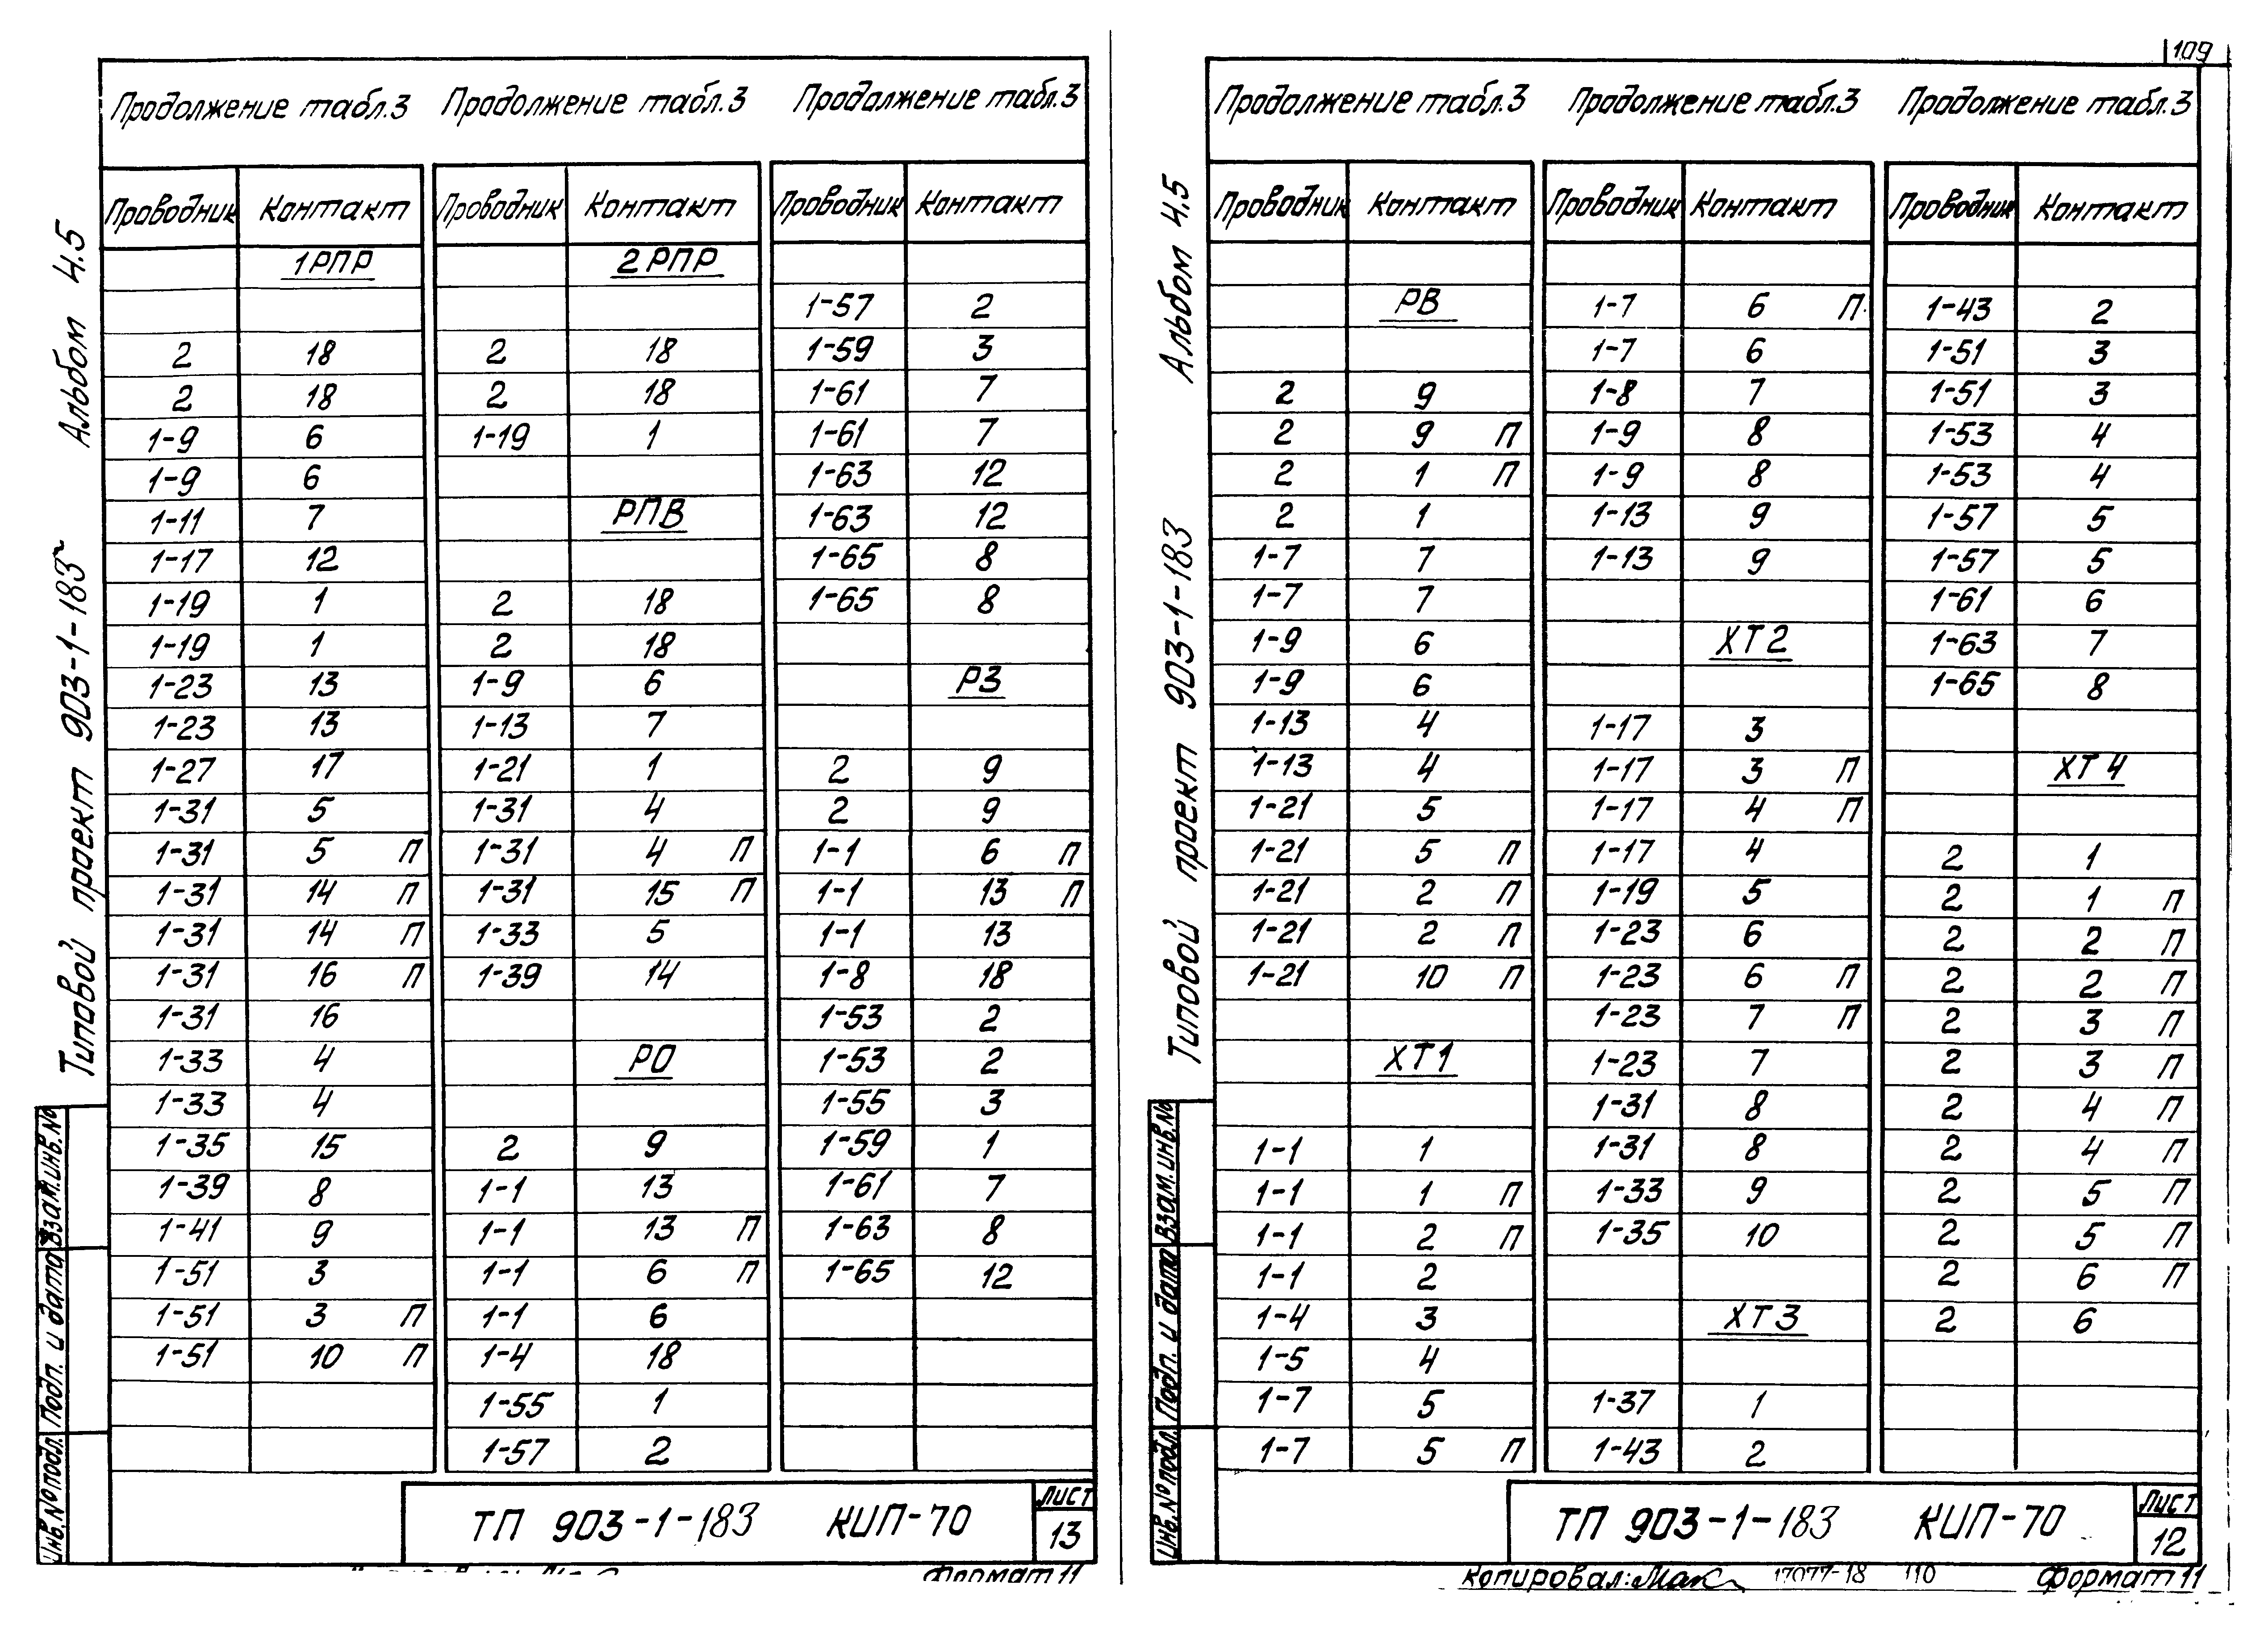 109
Продолжение табл.3 Продолжение табл.3 Продолжение табл.3
Проводник Контакт Проводник Контакт Проводник Контакт
1РПР 2РПР
1-57 2
2 18 2 18 1-59 3
2 18 2 18 1-61 7
1-9 6 1-19 1 1-61 7
1-9 6 1-63 12
1-11 7 РПВ 1-63 12
1-17 12 1-65 8
1-19 1 2 18 1-65 8
1-19 1 2 18
1-23 13 1-9 6 РЗ
1-23 13 1-13 7
1-27 17 1-21 1 2 9
1-31 5 1-31 4 2 9
1-31 5 П 1-31 4 П 1-1 6 П
1-31 14 П 1-31 15 П 1-1 13 П
1-31 14 П 1-33 5 1-1 13
1-31 16 П 1-39 14 1-8 18
1-31 16 1-53 2
1-33 4 РО 1-53 2
1-33 4 1-55 3
1-35 15 2 9 1-59 1
1-39 8 1-1 13 1-61 7
1-41 9 1-1 13 П 1-63 8
1-51 3 1-1 6 П 1-65 12
1-51 3 П 1-1 6
1-51 10 П 1-4 18
1-55 1
1-57 2
ТП 903-1-183 КИП-70
Лист
13
Формат 11
Альбом 4.5
Типовой проект 903-1-183
Взам.инв.№
Подп. и дата
Инв.№подл.
Продолжение табл.3 Продолжение табл.3 Продолжение табл.3
Проводник Контакт Проводник Контакт Проводник Контакт
РВ 1-7 6 П 1-43 2
1-7 6 1-51 3
2 9 1-8 7 1-51 3
2 9 П 1-9 8 1-53 4
2 1 П 1-9 8 1-53 4
2 1 1-13 9 1-57 5
1-7 7 1-13 9 1-57 5
1-7 7 1-61 6
1-9 6 ХТ2 1-63 7
1-9 6 1-65 8
1-13 4 1-17 3
1-13 4 1-17 3 П ХТ4
1-21 5 1-17 4 П
1-21 5 П 1-17 4 2 1
1-21 2 П 1-19 5 2 1 П
1-21 2 П 1-23 6 2 2 П
1-21 10 П 1-23 6 П 2 2 П
1-23 7 П 2 3 П
ХТ1 1-23 7 2 3 П
1-31 8 2 4 П
1-1 1 1-31 8 2 4 П
1-1 1 П 1-33 9 2 5 П
1-1 2 П 1-35 10 2 5 П
1-1 2 2 6 П
1-4 3 ХТ3 2 6
1-5 4
1-7 5 1-37 1
1-7 5 П 1-43 2
ТП 903-1-183 КИП-70
Лист
12
Копировал: 17077-18 110 Формат 11
Альбом 4.5
Типовой проект 903-1-183
Взам.инв.№
Подп. и дата
Инв.№подл.